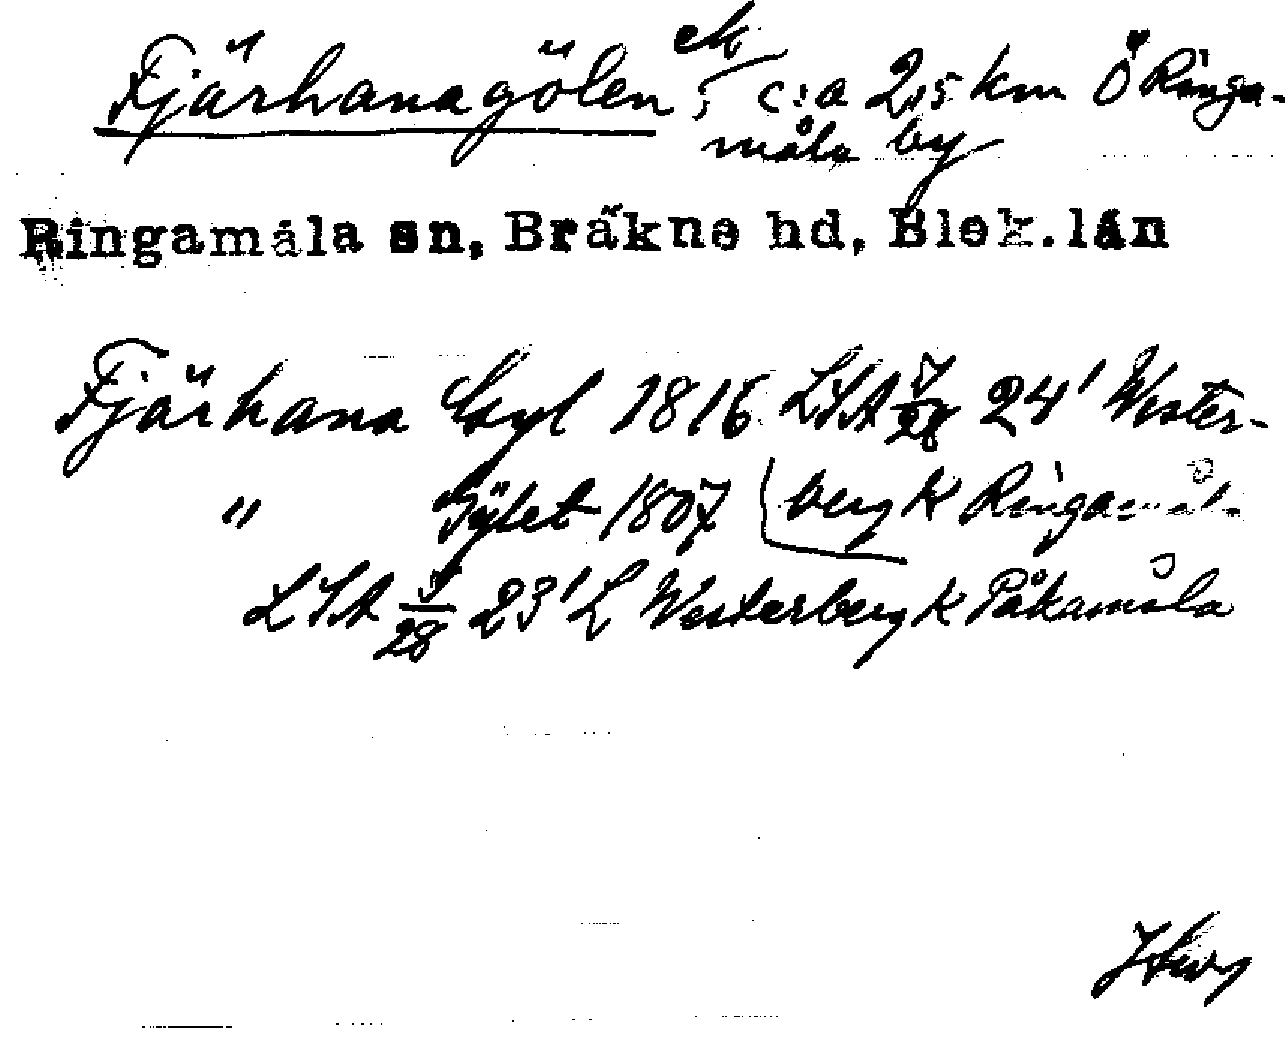 Fjärhanagölen, ek c:a 2,5 km Ö Ringa-
måla by
Ringamåla sn, Bräkne hd, Blek.län
Fjärhana Gyl 1816 LSA 24' Wester-
" Gylet 1807 berg k Ringamåla
LSA 28 23' L Westerberg k Påkamåla